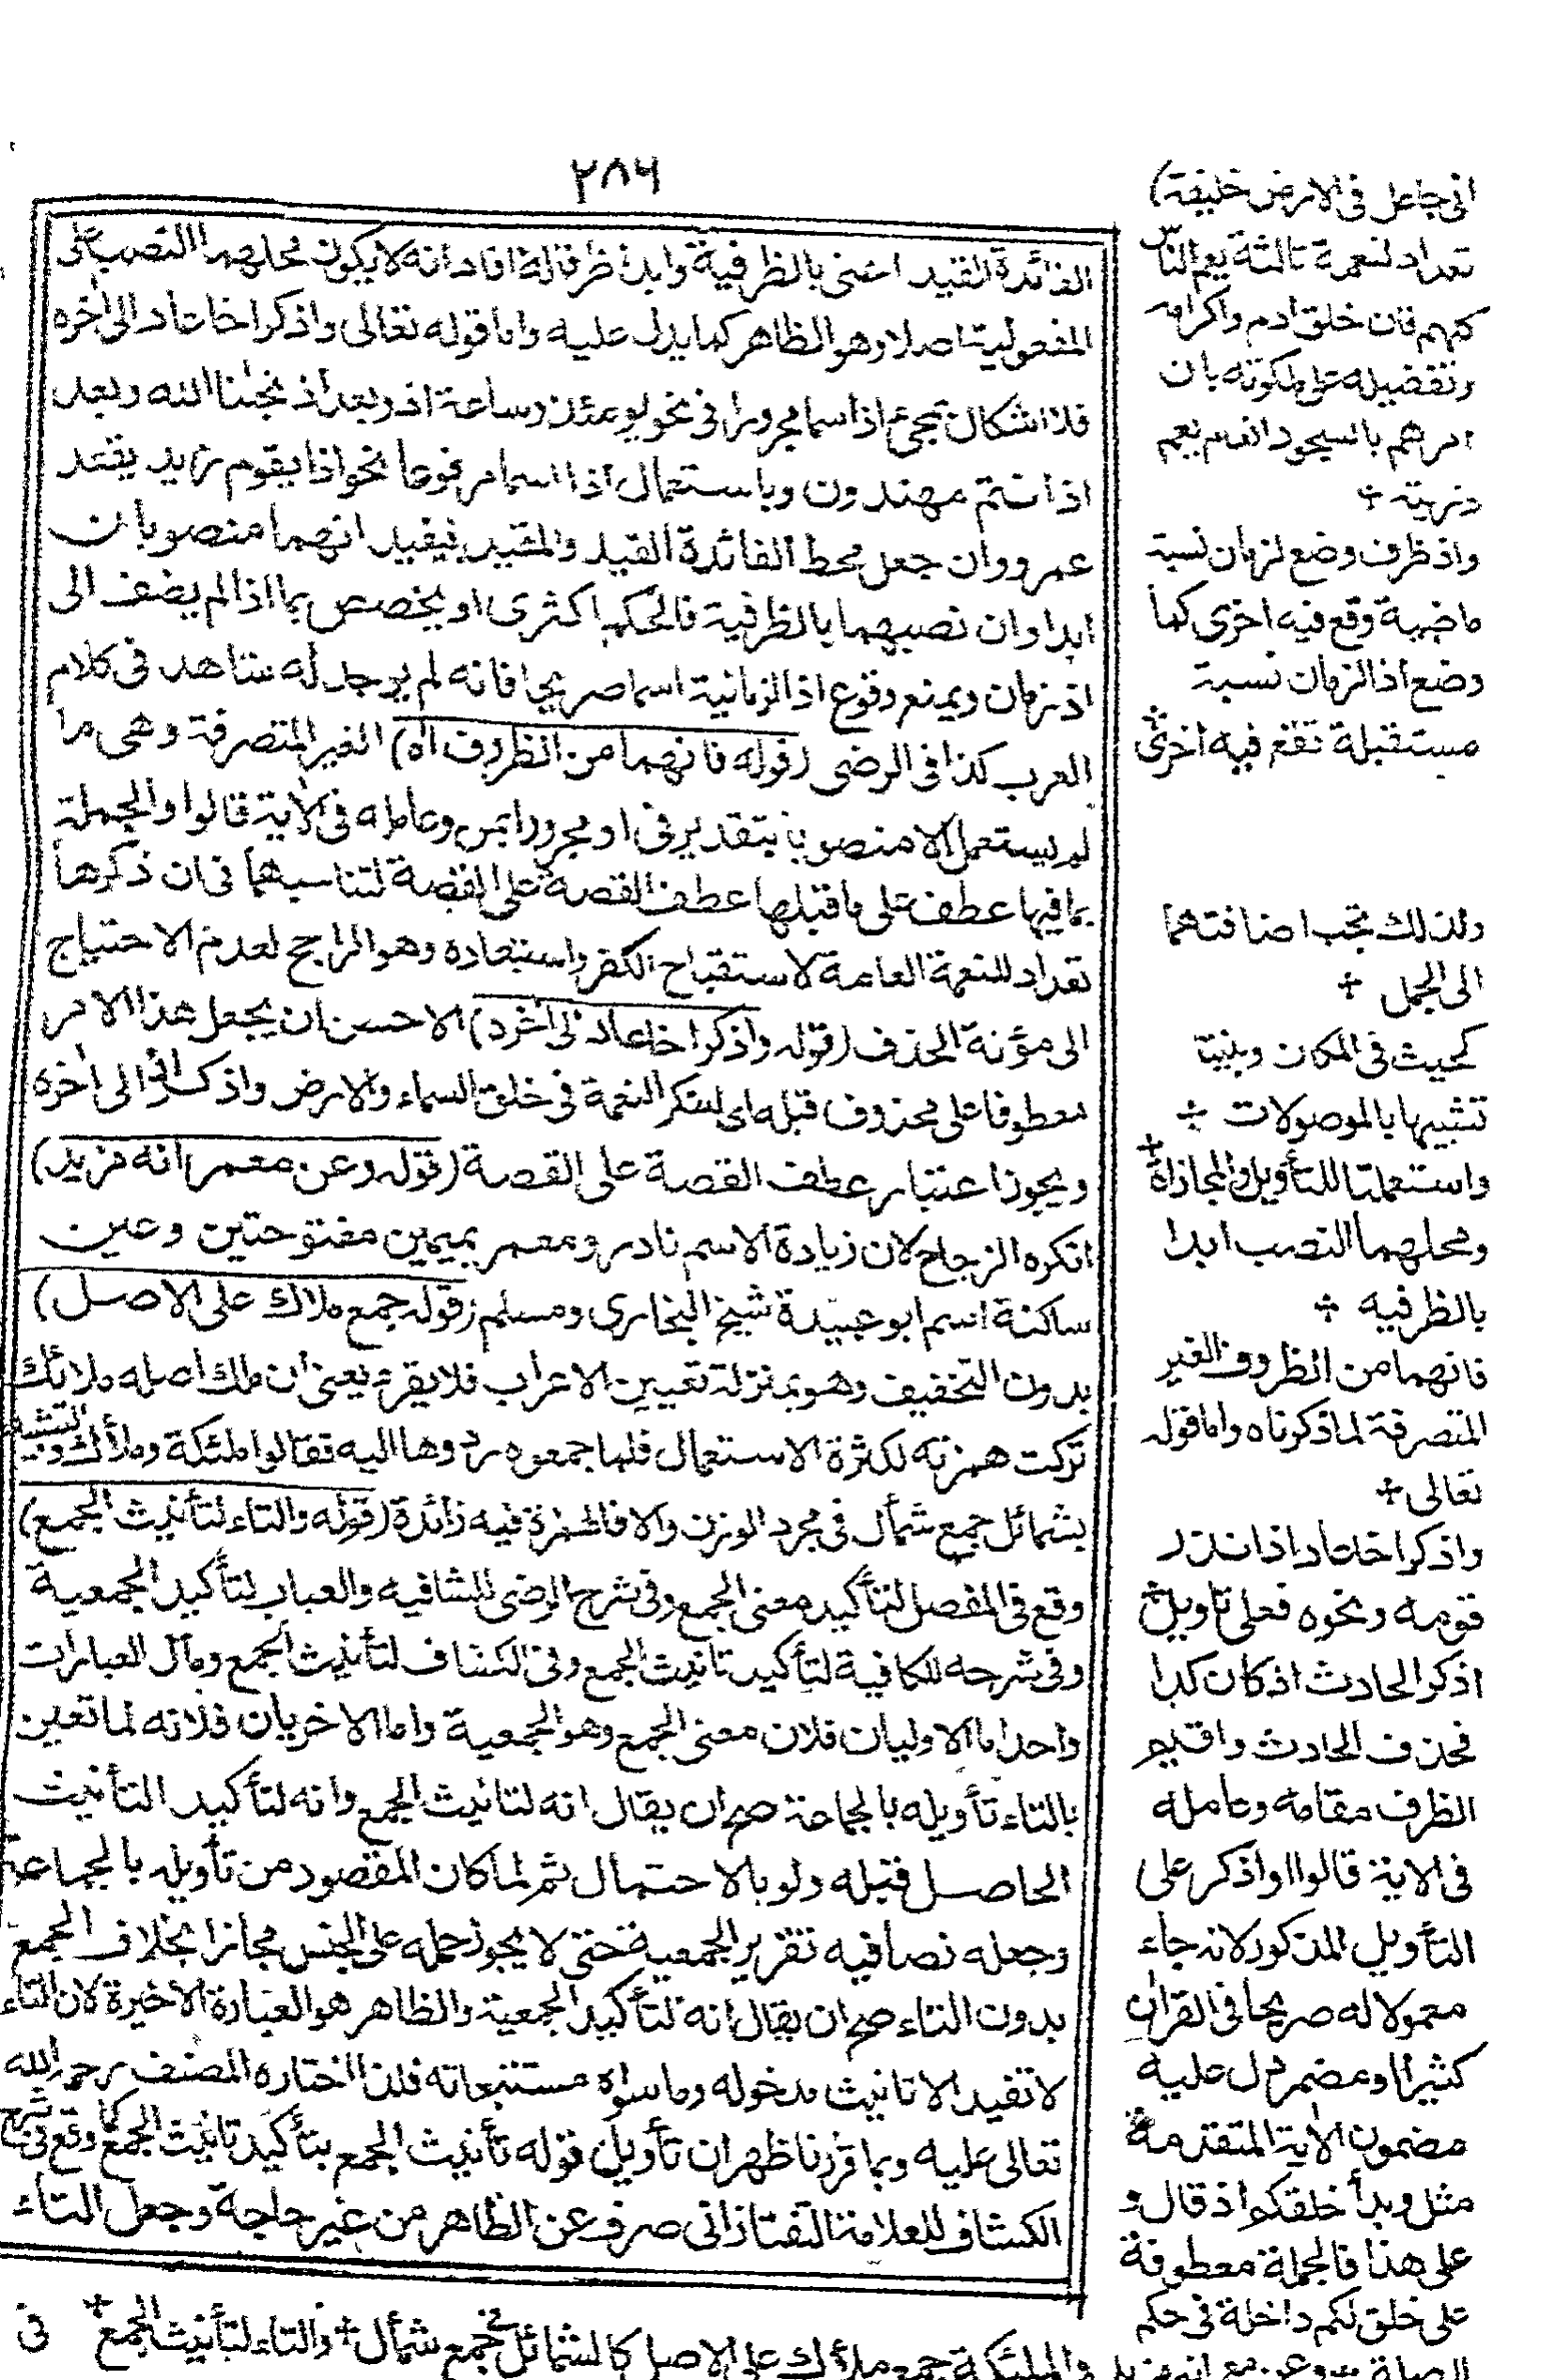 ٢٨٦
الفائدة القيد اعنى بالظرفية وابدا ظرفا له افاد انه لا يكون محلهما النصب على
المفعولية اصلا وهو الظاهر كما يدل عليه واما قوله تعالى واذكر اخا عاد الى اخره
فلا اشكال بمجئ اذ اسما مجرورا فى نحو يومئذ وساعة اذ وبعد اذ نجٰنا الله وبعد
اذ انتم مهتدون وباستعمال اذا اسما مرفوعا نحو اذا يقوم زيد يقعد
عمرو وان جعل محط الفائدة القيد والمقيد فيفيد انهما منصوبان
ابدا وان نصبهما بالظرفية فالحكم اكثرى او يخصص بما اذا لم يضف الى
اذ زمان ويمنع وقوع اذا الزمانية اسما صريحا فانه لم يوجد له شاهد فى كلام
العرب كذا فى الرضى (قوله فانهما من الظروف اه) الغير المتصرفة وهى ما
لم يستعمل الا منصوبا بتقدير فى او مجرورا بمن وعامله فى الاية قالوا والجملة
بما فيها عطف على ما قبلها عطف القصة على القصة لتناسبهما فى ان ذكرها
تعداد للنعمة العامة لاستقباح الكفر واستبعاده وهو الراجح لعدم الاحتياج
الى مؤنة الحذف (قوله واذكر اخا عاد الى اخره) الاحسن ان يجعل هذا الامر
معطوفا على محذوف قبله اى اشكر النعمة فى خلق السماء والارض واذكر الى اخره
ويجوز اعتبار عطف القصة على القصة (قوله وعن معمر انه مزيد)
انكره الزجاج لان زيادة الاسم نادر ومعمر بميمين مفتوحتين وعين
ساكنة اسم ابو عبيدة شيخ البخارى ومسلم (قوله جمع ملاك على الاصل)
بدون التخفيف وهو بمنزلة تعيين الاعراب فلا يقرء يعنى ان ملك اصله ملائك
تركت همزته لكثرة الاستعمال فلما جمعوه ردوها اليه فقالوا ملئكة وملاك والتشبيه
بشمائل جمع شمأل فى مجرد الوزن والا فالهمزة فيه زائدة (قوله والتاء لتأنيث الجمع)
وقع فى المفصل لتأكيد معنى الجمع وفى شرح الرضى للشافيه والعباب لتأكيد الجمعية
وفى شرحه للكافية لتأكيد تانيث الجمع وفى الكشاف لتأنيث الجمع ومآل العبارات
واحد اما الاوليان فلان معنى الجمع وهو الجمعية واما الاخريان فلانه لما تعين
بالتاء تأويله بالجماعة صح ان يقال انه لتانيث الجمع وانه لتأكيد التأنيث
الحاصل قبله ولو بالاحتمال ثم لما كان المقصود من تأويله بالجماعة
وجعله نصا فيه تقرير الجمعية حتى لا يجوز حمله على الجنس مجازا بخلاف الجمع
بدون التاء صح ان يقال انه لتأكيد الجمعية والظاهر هو العبارة الاخيرة لان التاء
لا تفيد الا تانيث مدخوله وما سواه مستتبعاته فلذا اختاره المصنف رحمه الله
تعالى عليه وبما قررنا ظهر ان تأويل قوله تأنيث الجمع بتأكيد تانيث الجمع كما وقع فى شرح
الكشاف للعلامة التفتازانى صرف عن الظاهر من غير حاجة وجعل التاء
فى
انى جاعل فى الارض خليفة)
تعداد لنعمة ثالثة يعم الناس
كلهم فان خلق ادم واكرامه
وتفضيله على ملكوته بان
امرهم بالسجود انعام يعم
ذريته ÷
واذ ظرف وضع لزمان نسبة
ماضية وقع فيه اخرى كما
وضع اذا لزمان نسبة
مستقبلة تقع فيه اخرى ÷
ولذلك تجب اضافتهما
الى الجمل ÷
كحيث فى المكان وبنيتا
تشبيها بالموصولات ÷
واستعملتا للتأويل والمجازاة ÷
ومحلهما النصب ابدا
بالظرفيه ÷
فانهما من الظروف الغير
المتصرفة لما ذكرناه واما قوله
تعالى ÷
واذكر اخا عاد اذ انذر
قومه ونحوه فعلى تاويل ÷
اذكر الحادث اذ كان كذا
فحذف الحادث واقيم
الظرف مقامه وعامله
فى الاية قالوا او اذكر على
التأويل المذكور لانه جاء
معمولا له صريحا فى القران
كثيرا او مضمر دل عليه
مضمون الاية المتقدمة
مثل وبدأ خلقكم اذ قال و
على هذا فالجملة معطوفة
على خلق لكم داخلة فى حكم
الصلة ÷ وعن معمر انه مزيد والملئكة جمع ملأك على الاصل كالشمائل جمع شمأل ÷ والتاء لتأنيث الجمع ÷